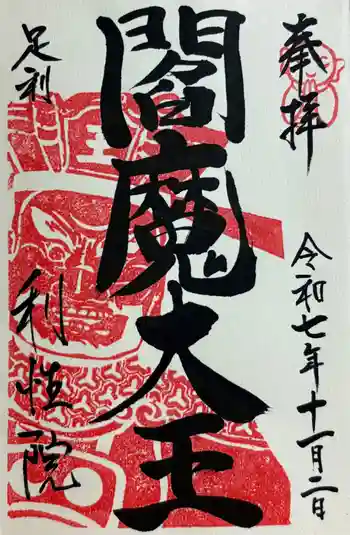 奉拝
令和七年十一月二日
閻魔大王
足利
利性院